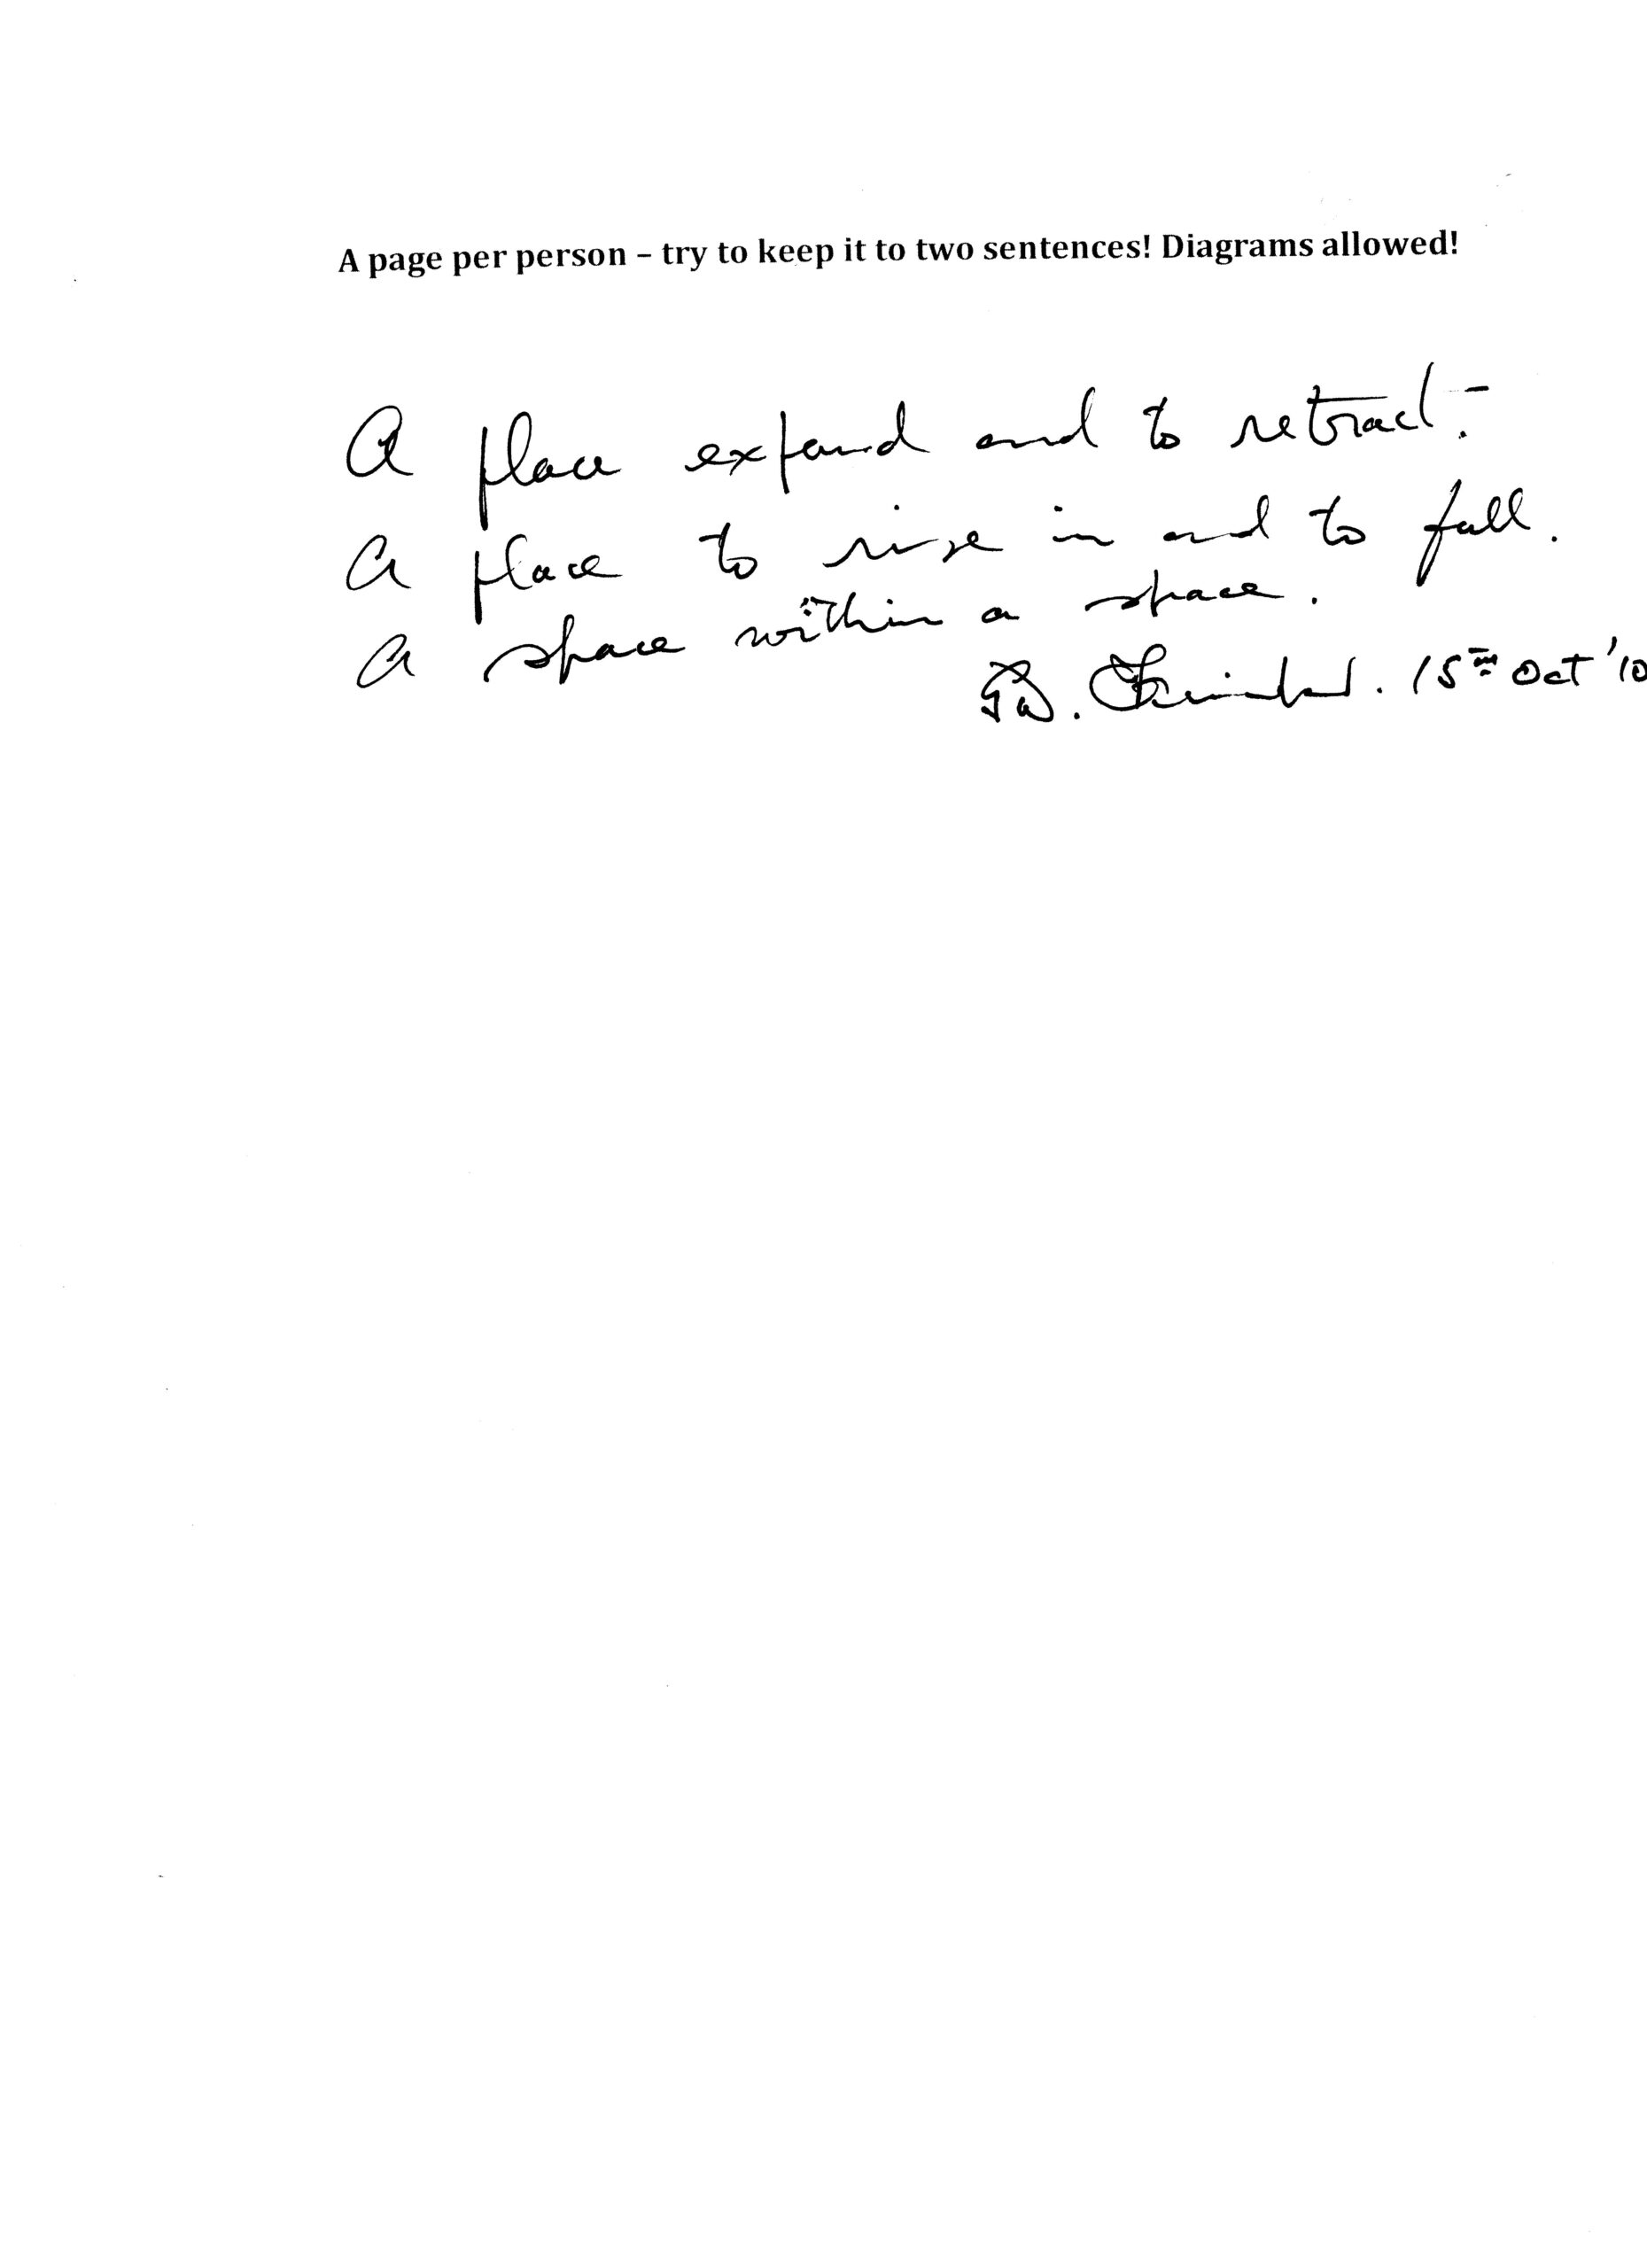 A page per person – try to keep it to two sentences! Diagrams allowed!
A place expand and to retract.-
A place to rise in and to fall.
A space within a space.
15th Oct '10